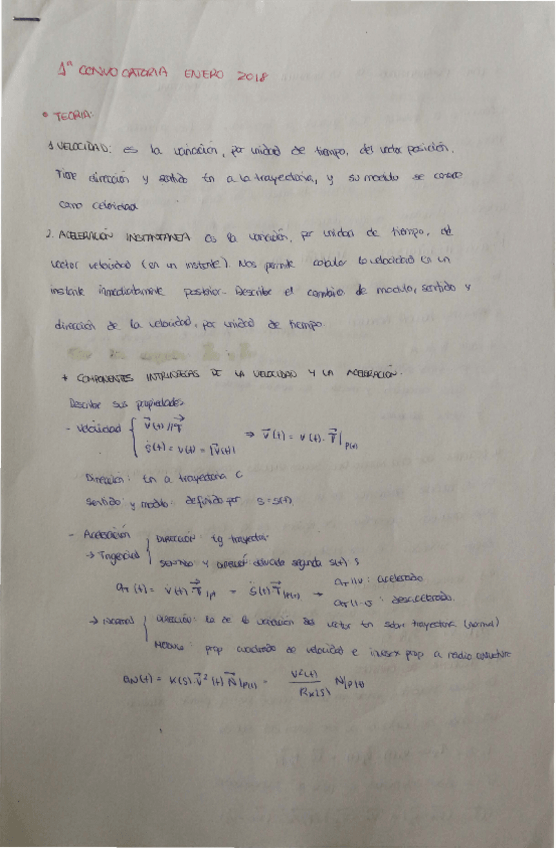 1ª CONVOCATORIA ENERO 2018
• TEORIA:
1. VELOCIDAD: es la variación, por unidad de tiempo, del vector posición.
Tiene dirección y sentido tn a la trayectoria, y su modulo se conoce
como celeridad
2. ACELERACIÓN INSTANTANEA es la variación, por unidad de tiempo, del
vector velocidad (en un instante). Nos permite calcular la velocidad en un
instante inmediatamente posterior. Describe el cambio de modulo, sentido y
dirección de la velocidad, por unidad de tiempo.
* COMPONENTES INTRINSECAS DE LA VELOCIDAD Y LA ACELERACIÓN.
Describir sus propiedades
- Velocidad { v⃗(t) // T⃗
ṡ(t) = v(t) = |v⃗(t)| ⇒ v⃗(t) = v(t) · T⃗|P(t)
Dirección: tn a trayectoria C
Sentido y modulo: definido por s = s(t)
- Aceleración
→ Tangencial { DIRECCIÓN: tg trayector
SENTIDO Y derivada segunda s(t) s
aT(t) = v̇(t) T⃗|P = s̈(t) T⃗|P(t) → aT // v : acelerado
aT // -v : desacelerado
→ Normal { DIRECCIÓN: la de la variación del vector tn sobre trayectoria (normal)
MODULO: prop cuadrado de velocidad e invers prop a radio curvatura
aN(t) = K(s) · v⃗²(t) N⃗|P(t) = v²(t) / RK(s) N|P(t)